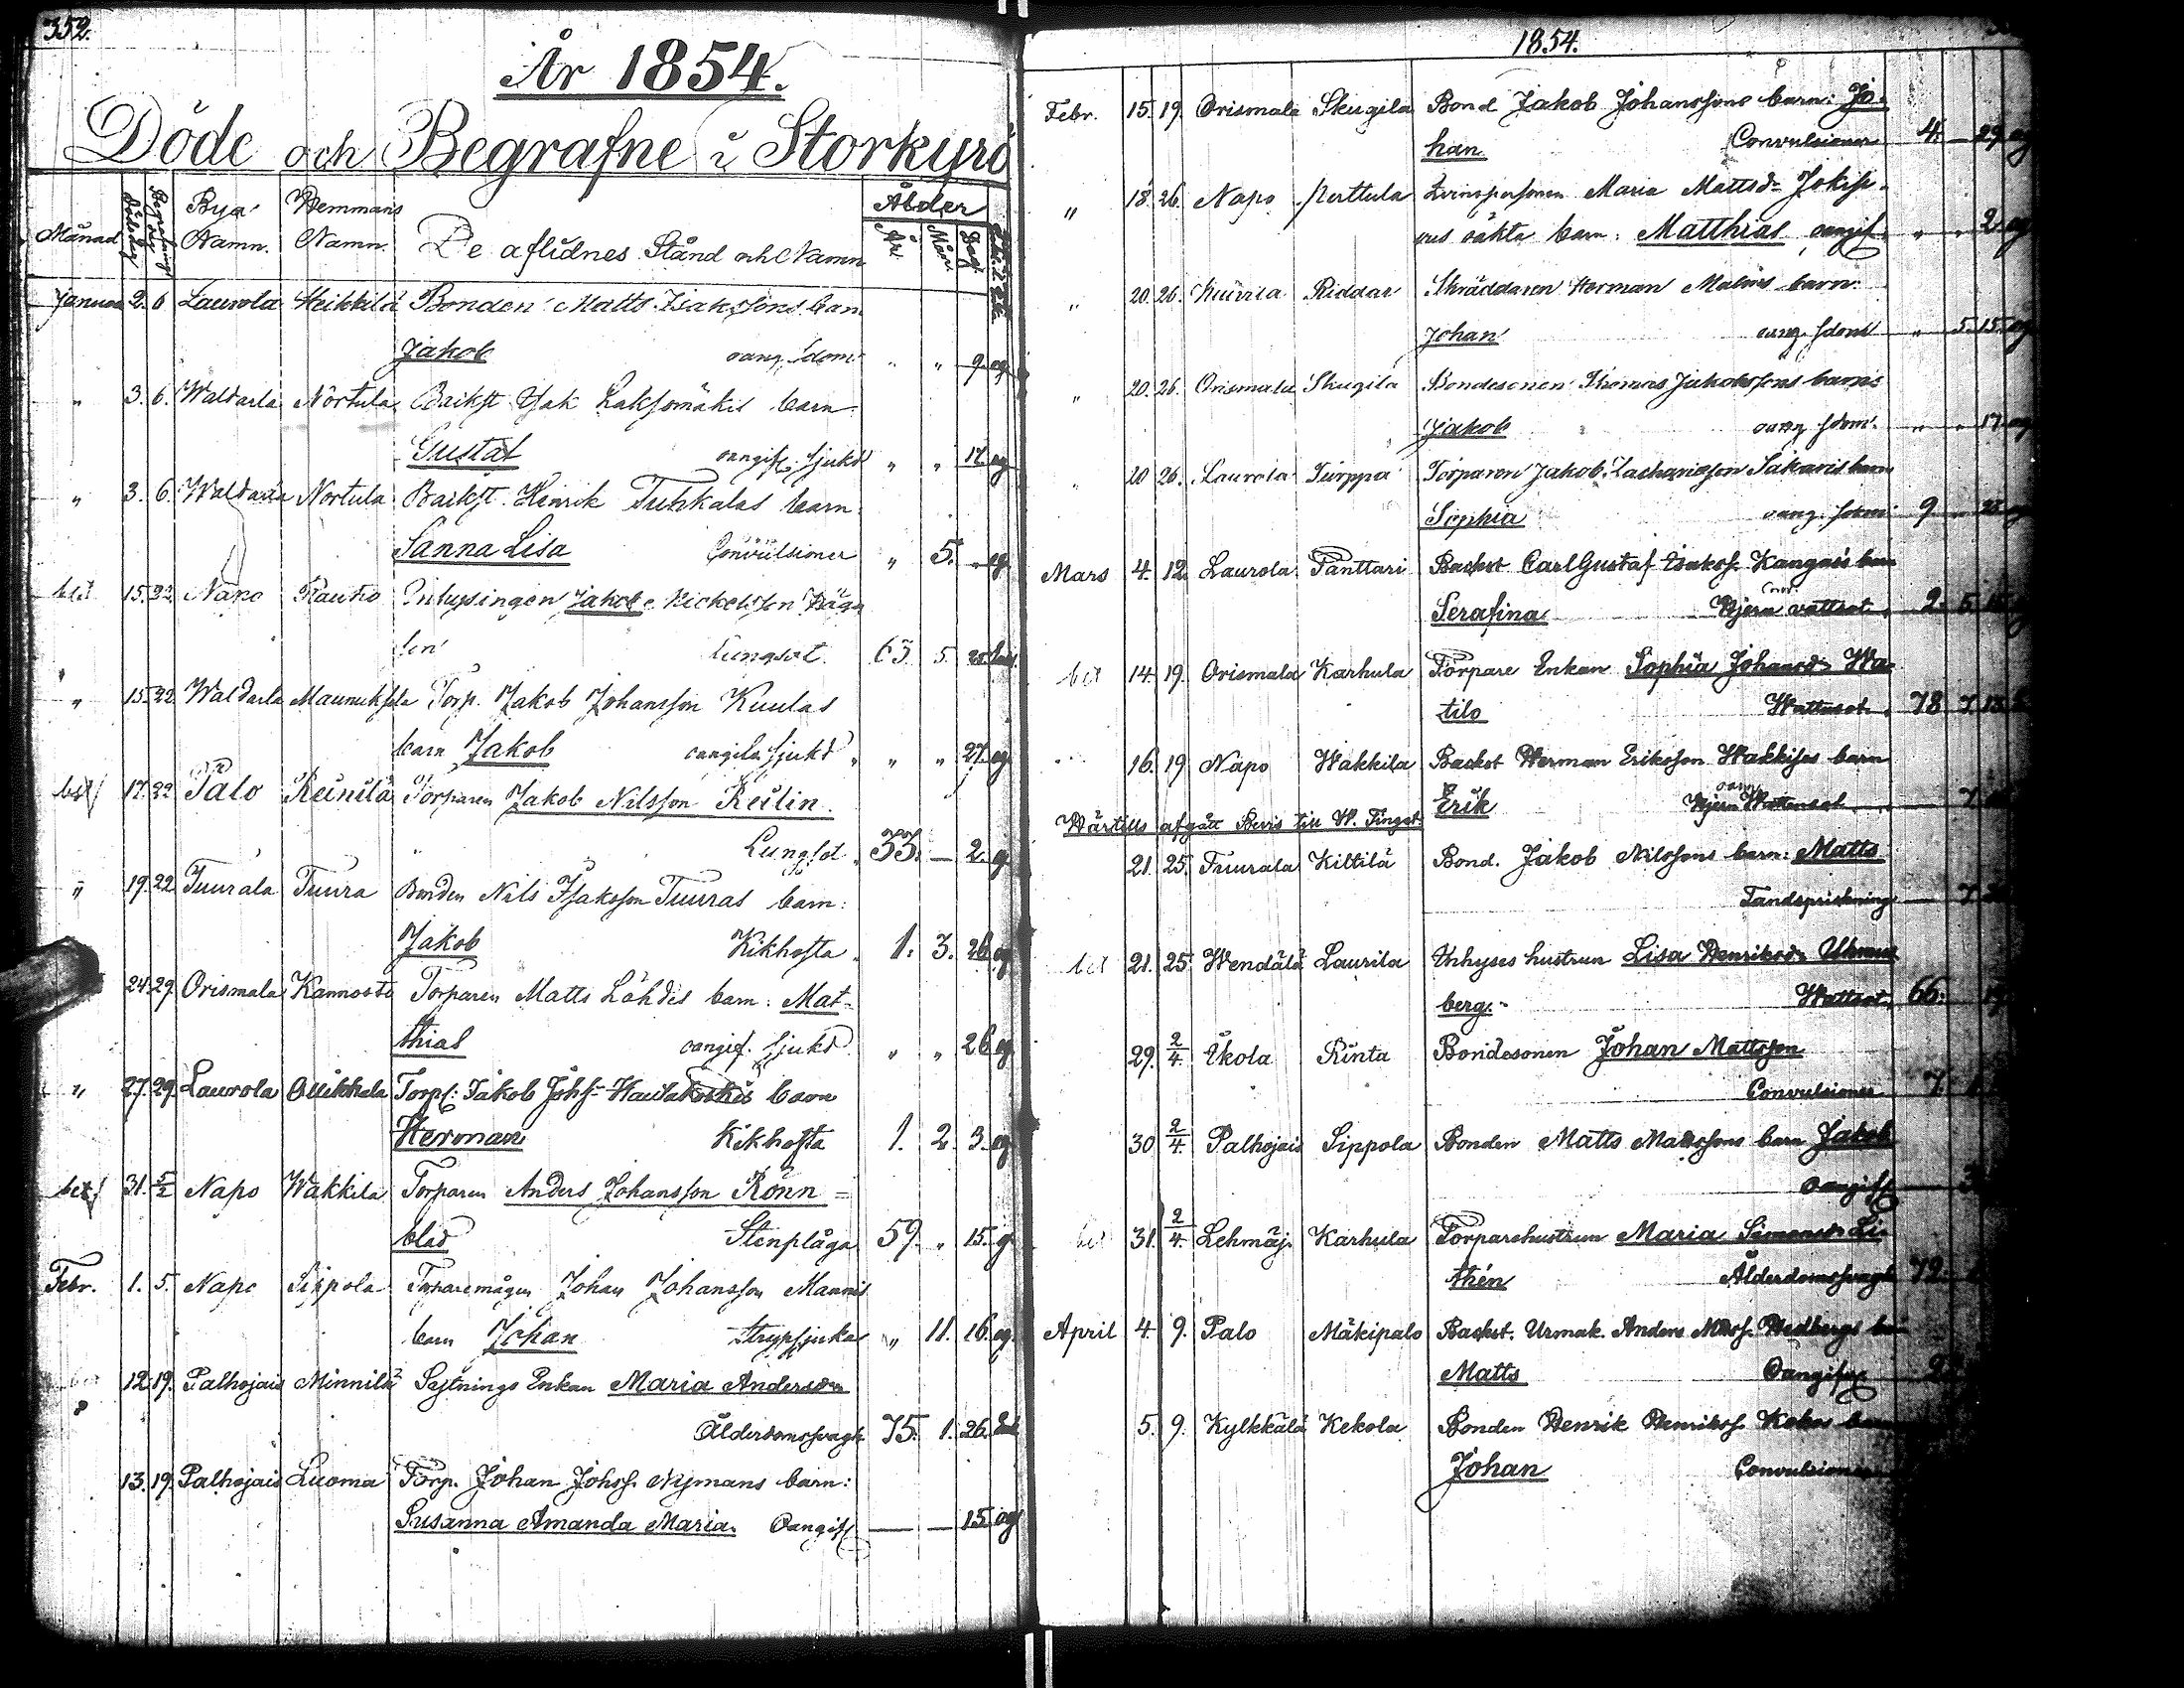 352.
År 1854.
Döde och Begrafne i Storkyro
Månad
Bya Namn.
Hemmans Namn.
De aflidnes Stånd och Namn
Ålder
År. Mån. Dag.
Januari 2. 6 Laurola Heikkilä Bonden Matts Isakssons barn
Jakob oang. sdom. " " 9. og
" 3. 6. Waldarla Nortula Backst Isak Laksomäkis barn
Gustaf oangif. sjukd " " 17. og
" 3. 6. Waldarla Nortula Backst. Henrik Tuhkalas barn
Sanna Lisa Convulsioner " 5. " og
bet 15. 22 Napo Rauko Inhysingen Jakob Mickelsson Häga
Lungsot. 63 5.
" 15. 22 Waldarla Maunuksela Torp. Jakob Johansson Kuulas
barn Jakob oangifn sjukd " " 27. og
bet 17. 22 Palo Reinilä Torparen Jakob Nilsson Reilin.
Lungsot 33. — 2. g.
" 19. 22 Tuurala Tuura Bonden Nils Isaksson Tuuras barn:
Jakob Kikhosta. 1. 3. 26 og
24. 29. Orismala Kamosto Torparen Matts Lähdes barn: Mat-
thias oangif. sjukd " " 26 og
" 27. 29. Laurola Ollikkala Torp: Jakob Johs- Hautakoskis barn
Herman Kikhosta 1. 2. 3. og
bet 31. 5/2 Napo Wakkila Torparen Anders Johansson Rönn=
blad Stenplåga 59. " 15. g.
Febr. 1. 5. Napo Sippola Torparemågen Johan Johansson Mannis
barn Johan Strypsjuka " 11. 16. og.
12. 19. Palhojais Minnilä Sytnings Enkan Maria Andersdr
Ålderdomssvagh. 75. 1. 26. Enk
13. 19. Palhojais Luoma Torp. Johan Johss. Nymans barn:
Susanna Amanda Maria. Oangif — — 15 og
1854.
Febr. 15. 19. Orismala Skugila Bond Jakob Johanssons barn: Jo-
han Convulsioner 4. — 29. og
" 18. 26. Napo Perttula Maria Mattsdr Jokip-
oäkta barn: Matthias oangif. " " 2. og
" 20. 26. Kuivila Riddar Skräddaren Herman Malms barn:
Johan oang. sdom " 5. 15. og
" 20. 26. Orismala Skugila Bondesonen Thomas Jakobssons barn:
Jakob oang sdom. " " 17. og
" 20 26. Laurola Turppa Torparen Jakob Zachariasson Sakaris barn
Sophia oang. sdom 9. " 28
Mars 4. 12. Laurola Panttari Backst Carl Gustaf Isakss. Kangas's barn
Serafina Hjern vattsot. 2. 5.
bet 14. 19. Orismala Karhula Torpare Enkan Sophia Johansdr Wa-
tilo Wattusot. 78 7. 13
16. 19 Napo Wakkila Backst Herman Eriksson Wakkilas barn
Erik Hjern Wattensot 7.
Härtills afgått Bevis till W. Tinget.
21. 25. Tuurala Kiltilä Bond. Jakob Nilssons barn: Matts
Tandsprickning — 7.
bet 21. 25. Wendälä Laurila Inhyses hustrun Lisa Henriksdr
berg. Wattsot. 66.
29. 2/4. Ikola Rinta Bondesonen Johan Mattsson
Convulsioner 7.
30 2/4. Palhojais Sippola Bonden Matts Matssons barn Jakob
Oangif —
bet 31. 2/4. Lehmäj. Karhula Torparehustrun Maria Simonsdr Li-
thén Ålderdomssvagh 72.
April 4. 9. Palo Mäkipalo Backst. Urmak. Anders Hedbergs
Matts Oangif
5. 9. Kylkkälä Kekola Bonden Henrik Henrikss. Kekos
Johan Convulsioner